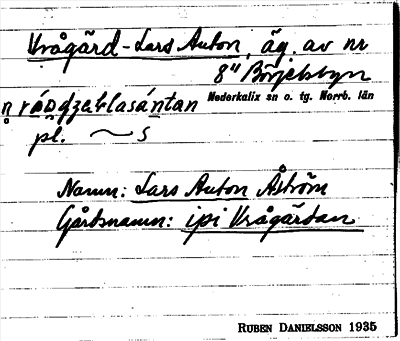 Vrågård-Lars Anton, äg. av nr
8¹¹ Börjelsbyn
Nederkalix sn o. tg. Norrb. län
pl. ~ s
Namn: Lars Anton Åström
Gårdsnamn: ipi Vrågårdan
RUBEN DANIELSSON 1935